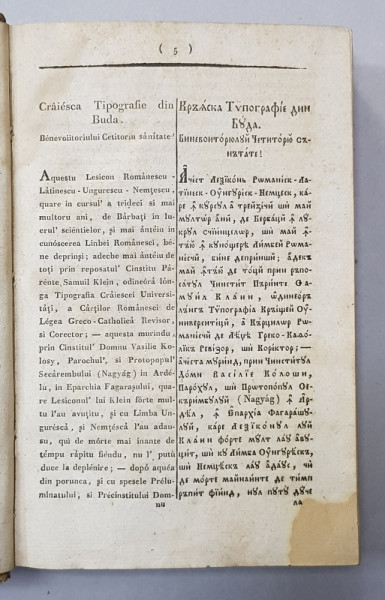 ( 5 )
Crăiésca Tipografie din
Buda.
Bénevoiitoriului Cetitoriu sănitate!
Aquestu Lesicon Românescu -
Lătinescu - Ungurescu - Nemţescu,
quare in cursul' a trideci si mai
multoru ani, de Bărbaţi in lu-
crul' sciéntielor, si mai ântéiu in
cunóscerea Linbei Românesci, bé-
ne deprinşi; adeche mai ântéiu de
toţi prin reposatul' Cinstitu Pă-
rénte Samuil Klein, odineóră lón-
ga Tipografia Crăiescei Universi-
tăţi, a Cărţilor Românesci de
Légea Greco-Catholică Revisor,
si Corector; — aquesta murindu,
prin Cinstitul' Domnu Vasilie Ko-
losy, Parochul', si Protopopul'
Secărembului (Nagyág) in Ardé-
lu, in Eparchia Fagarașului, qua-
re Lesiconul' lui Klein fórte mul-
tu l'au avuţitu, și cu Limba Un-
gurésca, și Nemţésca l'au adau-
su, qui de mórte mai inante de
témpu răpitu fiéndu, nu l' putú
duce la deplénire; — dopó aquéa
din porunca, și cu spesele Prélu-
minatului, si Précinstitului Dom-
nu
Крѣѧска Тѷпографїе дин
Бꙋда.
Биневоиторюлꙋй Четиторю съ-
нътате!
Ачест Леѯїкон Рꙋмѫнеск - Ла-
тїнеск - Оунгꙋреск - Немцеск, ка-
ре ꙟ кꙋрсꙋл а трейзѣчй шй май
мꙋлтѡр анй, де Бърбацй ꙟ лꙋ-
крꙋл счїинцелѡр, шй май ꙟ-
тѫю ꙟ кꙋноащере Лимбей Рꙋмѫ-
нещй, бине деприншй; адекъ
май ꙟтѫю де тоцй прин ръпо-
сатꙋл Чинстит Пъринте Са-
мꙋил Клаин, ѡдинеоръ
лѫнгъ Тѷпографїа Кръїещей Оу-
ниверситецй, а Кърцилѡр Рꙋ-
мѫнещй де Леџѣ Греко-Каѳо-
ликъ Ревизор, шй Коректор; —
ачѣста мꙋринд, прин Чинститꙋл
Домн Василїе Колоши,
Парохꙋл, шй Протопопꙋл Се-
кърѫмбꙋлꙋй (Nagyág) ꙟ Ар-
дѣл, ꙟ Епархїа Фагарашꙋ-
лꙋй, каре Леѯїконꙋл лꙋй
Клаин фоарте мꙋлт лаꙋ авꙋ-
цит, шй кꙋ Лимба Оунгꙋрѣскъ,
шй Немцѣскъ лаꙋ адаꙋс, чй
де моарте майнаинте де тимп
ръпит фїинд, нꙋл пꙋтꙋ дꙋче
ла